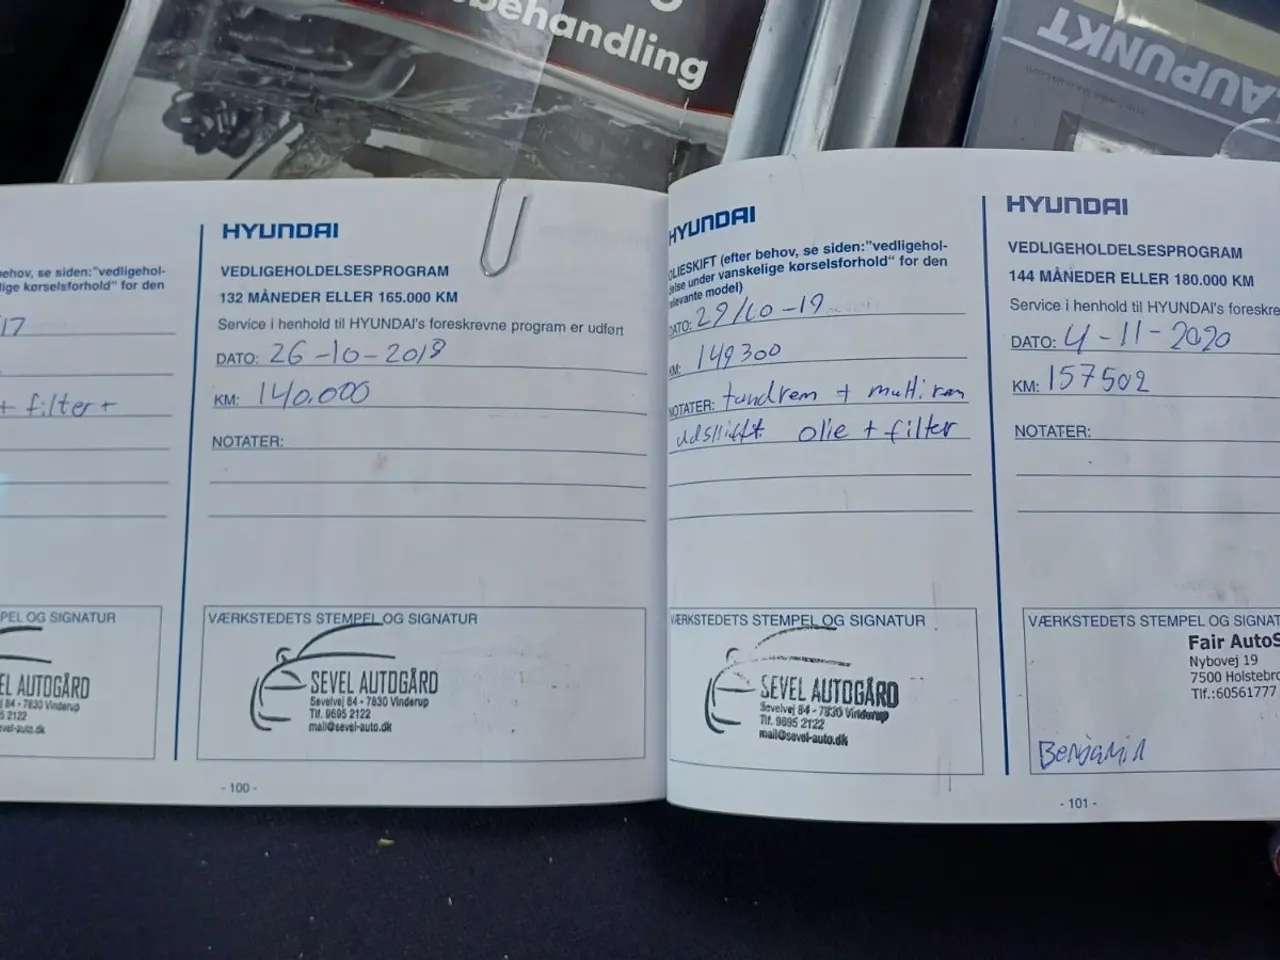 behandling
AUPUNKT
ehov, se siden:"vedligehol-
lige kørselsforhold" for den
17
+ filter +
PEL OG SIGNATUR
EL AUTOGÅRD
j 84 - 7830 Vinderup
5 2122
evel-auto.dk
HYUNDAI
VEDLIGEHOLDELSESPROGRAM
132 MÅNEDER ELLER 165.000 KM
Service i henhold til HYUNDAI's foreskrevne program er udført
DATO: 26-10-2018
KM: 140.000
NOTATER:
VÆRKSTEDETS STEMPEL OG SIGNATUR
SEVEL AUTOGÅRD
Sevelvej 84 - 7830 Vinderup
Tlf. 9695 2122
mail@sevel-auto.dk
- 100 -
HYUNDAI
OLIESKIFT (efter behov, se siden:"vedligehol-
delse under vanskelige kørselsforhold" for den
elevante model)
DATO: 29/10-19
KM: 149300
NOTATER: tandrem + multirem
udskifft olie + filter
VÆRKSTEDETS STEMPEL OG SIGNATUR
SEVEL AUTOGÅRD
Sevelvej 84 - 7830 Vinderup
Tlf. 9695 2122
mail@sevel-auto.dk
HYUNDAI
VEDLIGEHOLDELSESPROGRAM
144 MÅNEDER ELLER 180.000 KM
Service i henhold til HYUNDAI's foreskre
DATO: 4-11-2020
KM: 157502
NOTATER:
VÆRKSTEDETS STEMPEL OG SIGNAT
Fair AutoS
Nybovej 19
7500 Holstebro
Tlf.:60561777
Benjamin
- 101 -